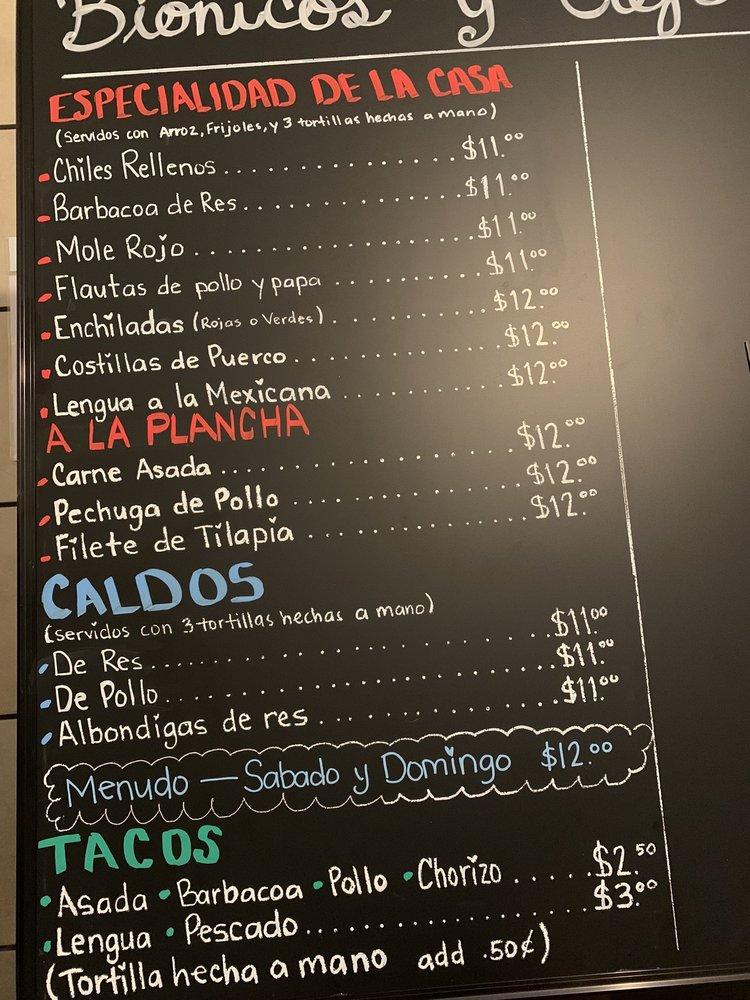 Bionicos y
ESPECIALIDAD DE LA CASA
(Servidos con Arroz, Frijoles, y 3 tortillas hechas a mano)
Chiles Rellenos . . . . . . . . . . . . . . . $11.00
Barbacoa de Res . . . . . . . . . . . . . . . $11.00
Mole Rojo . . . . . . . . . . . . . . . $11.00
Flautas de pollo y papa . . . . . . . . . . . . $11.00
Enchiladas (Rojas o Verdes) . . . . . . . . . . . $12.00
Costillas de Puerco . . . . . . . . . . . . . . $12.00
Lengua a la Mexicana . . . . . . . . . . . . $12.00
A LA PLANCHA
Carne Asada . . . . . . . . . . . . . . . $12.00
Pechuga de Pollo . . . . . . . . . . . . . . $12.00
Filete de Tilapia . . . . . . . . . . . . . . $12.00
CALDOS
(servidos con 3 tortillas hechas a mano)
De Res . . . . . . . . . . . . . . . $11.00
De Pollo . . . . . . . . . . . . . . . $11.00
Albondigas de res . . . . . . . . . . . . . $11.00
Menudo — Sabado y Domingo $12.00
TACOS
• Asada • Barbacoa • Pollo • Chorizo . . . . . $2.50
• Lengua • Pescado . . . . . . . . . . . . . . $3.00
(Tortilla hecha a mano add .50¢)